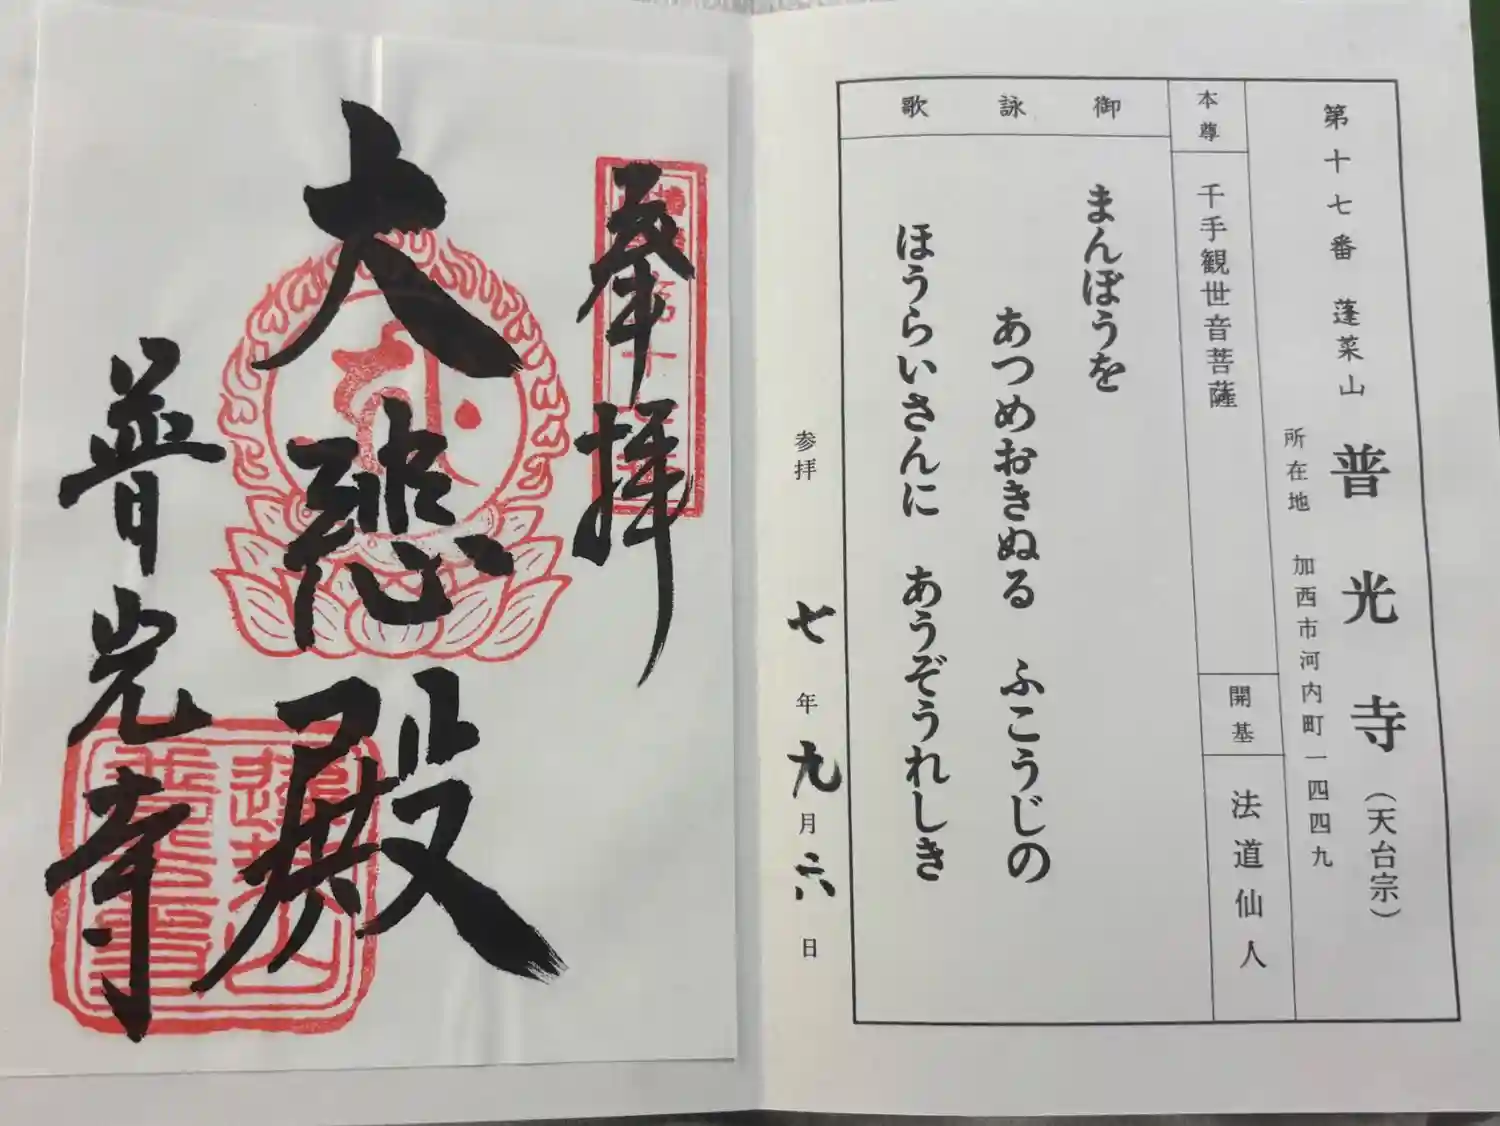 第十七番 蓬莱山 普光寺（天台宗）
所在地 加西市河内町一四四九
本尊
千手観世音菩薩
開基
法道仙人
御詠歌
まんぼうを
あつめおきぬる ふこうじの
ほうらいさんに あうぞうれしき
参拝 七年九月六日
奉拝
大悲殿
普光寺